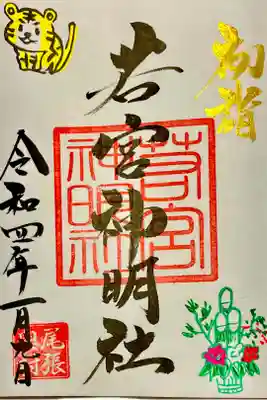 初詣
若宮神明社
若宮神明社
令和四年一月九日
尾張